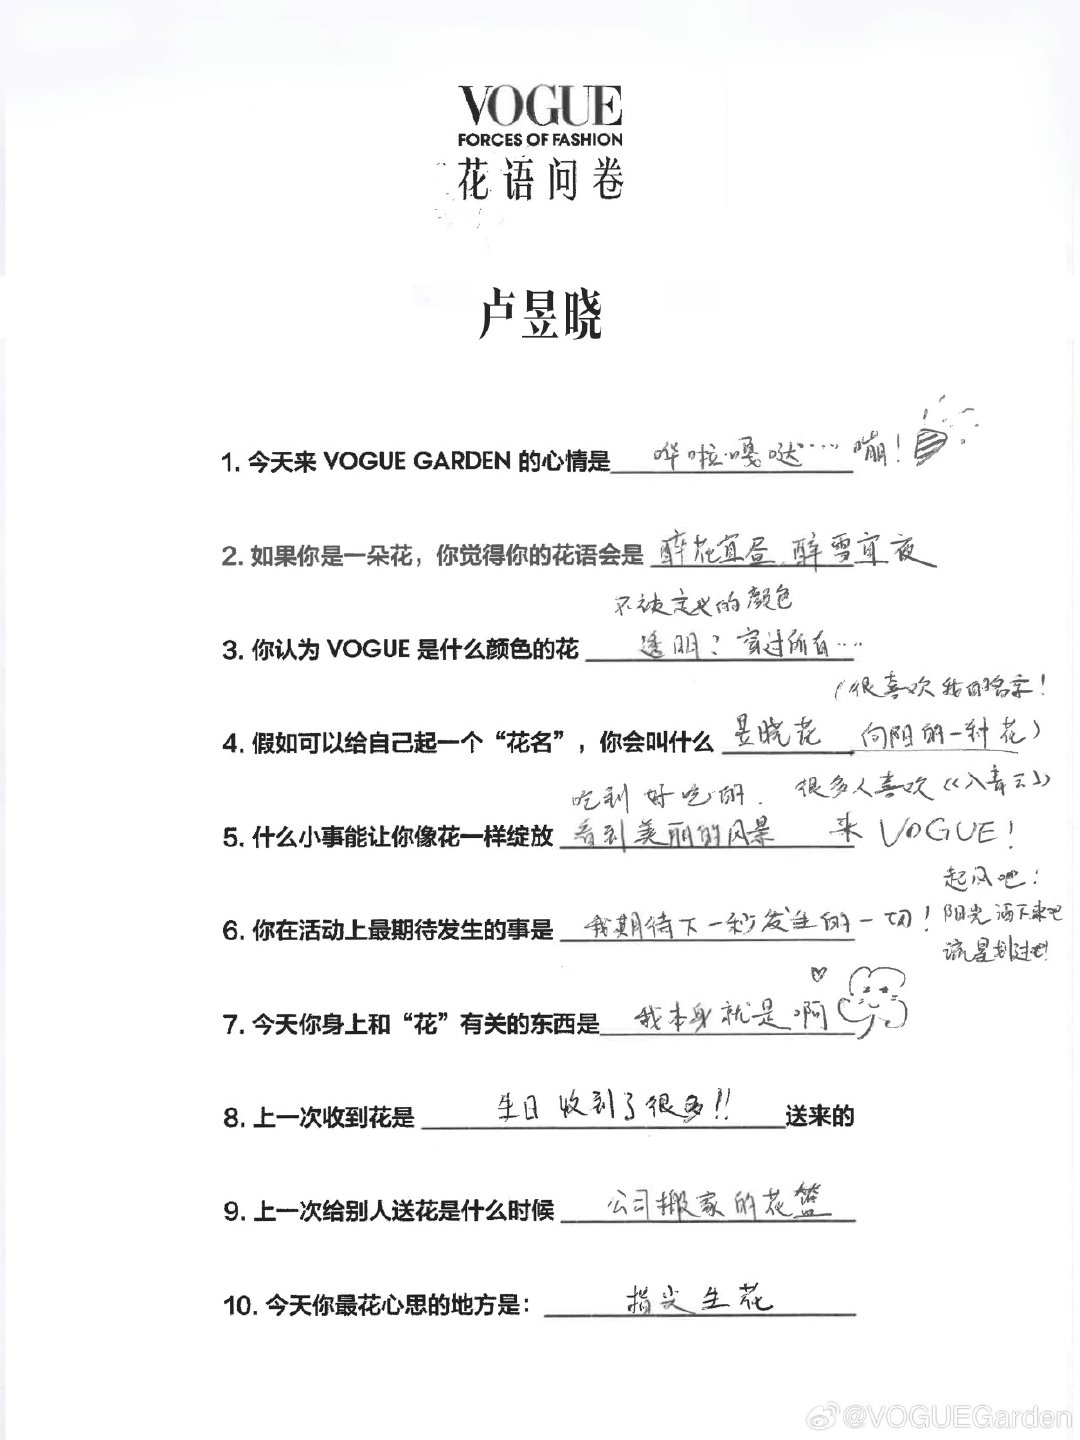 VOGUE
FORCES OF FASHION
花语问卷
卢昱晓
1. 今天来 VOGUE GARDEN 的心情是 哗啦嘎哒…… 嘣!
2. 如果你是一朵花，你觉得你的花语会是 醉花宜昼，醉雪宜夜
不被定义的颜色
3. 你认为 VOGUE 是什么颜色的花 透明? 穿过所有…
(很喜欢我的名字!
4. 假如可以给自己起一个“花名”，你会叫什么 昱晓花 向阳的一种花)
吃到好吃的. 很多人喜欢《入青云》
5. 什么小事能让你像花一样绽放 看到美丽的风景 来 VOGUE!
起风吧!
6. 你在活动上最期待发生的事是 我期待下一秒发生的一切! 阳光洒下来吧
流星划过吧!
7. 今天你身上和“花”有关的东西是 我本身就是啊
8. 上一次收到花是 生日收到了很多!! 送来的
9. 上一次给别人送花是什么时候 公司搬家的花篮
10. 今天你最花心思的地方是： 指尖生花
@VOGUEGarden